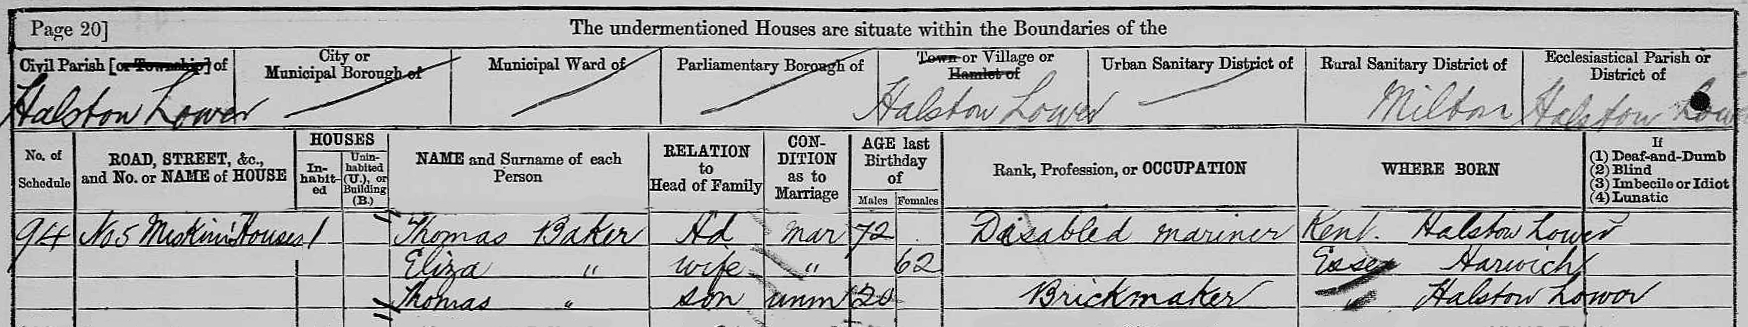 Page 20]
The undermentioned Houses are situate within the Boundaries of the
Civil Parish [or Township] of
City or Municipal Borough of
Municipal Ward of
Parliamentary Borough of
Town or Village or Hamlet of
Urban Sanitary District of
Rural Sanitary District of
Ecclesiastical Parish or District of
Halstow Lower
Halstow Lower
Milton
Halstow Lower
No. of Schedule
ROAD, STREET, &c., and No. or NAME of HOUSE
HOUSES
In-habit-ed
Unin-habited (U.), or Building (B.)
NAME and Surname of each Person
RELATION to Head of Family
CON-DITION as to Marriage
AGE last Birthday of
Males
Females
Rank, Profession, or OCCUPATION
WHERE BORN
If
(1) Deaf-and-Dumb
(2) Blind
(3) Imbecile or Idiot
(4) Lunatic
94 No 5 Meskins Houses 1 Thomas Baker Hd mar 72 Disabled mariner Kent. Halstow Lower
Eliza " wife " 62 Essex Harwich
Thomas " son unm 20 Brickmaker " Halstow Lower